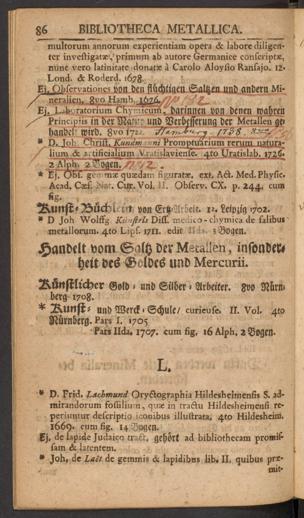 86 BIBLIOTHECA METALLICA.
multorum annorum experientiam opera & labore diligen-
ter investigatæ, primum ab autore Germanice conscriptæ,
nunc vero latinitate donatæ à Carolo Aloysio Ransajo. 12.
Lond. & Roderd. 1678.
Ej. Observationes von den flüchtigen Saltzen und andern Mi-
neralien. 8vo Hamb. 1676.
Ej. Laboratorium Chymicum, darinnen von denen wahren
Principiis in der Natur und Verbesserung der Metallen ge-
handelt wird. 8vo 1722. Hamburg 1738.
* D. Joh. Christ. Kundmanni Promptuarium rerum natura-
lium & artificialium Vratislaviense. 4to Uratislab. 1726.
2 Alph. 2 Bogen.
* Ej. Obs. gemmæ quædam figuratæ. ext. Act. Med. Physic.
Acad. Cæs. Nat. Cur. Vol. II. Observ. CX. p. 244. cum
fig.
Kunst-Büchlein von Ertz-Arbeit. 12. Leipzig 1702.
* D Joh Wolffg Kunstels Diss. medico-chymica de salibus
metallorum. 4to Lips. 1711. edit IIda. 3 Bogen.
Handelt vom Saltz der Metallen, insonder-
heit des Goldes und Mercurii.
Künstlicher Gold- und Silber-Arbeiter. 8vo Nürn-
berg 1708.
* Kunst- und Werck-Schule/ curieuse. II. Vol. 4to
Nürnberg. Pars I. 1705
Pars IIda. 1707. cum fig. 16 Alph. 2 Bogen.
L.
* D. Frid. Lachmund Oryctographia Hildesheimensis S. ad-
mirandorum fossilium, quæ in tractu Hildesheimensi re-
periuntur descriptio iconibus illustrata. 4to Hildesheim.
1669. cum fig. 14 Bogen.
Ej. de lapide Judaico tract. gehört ad bibliothecam promis-
sam & latentem.
* Joh. de Laët de gemmis & lapidibus lib. II. quibus præ-
mit-